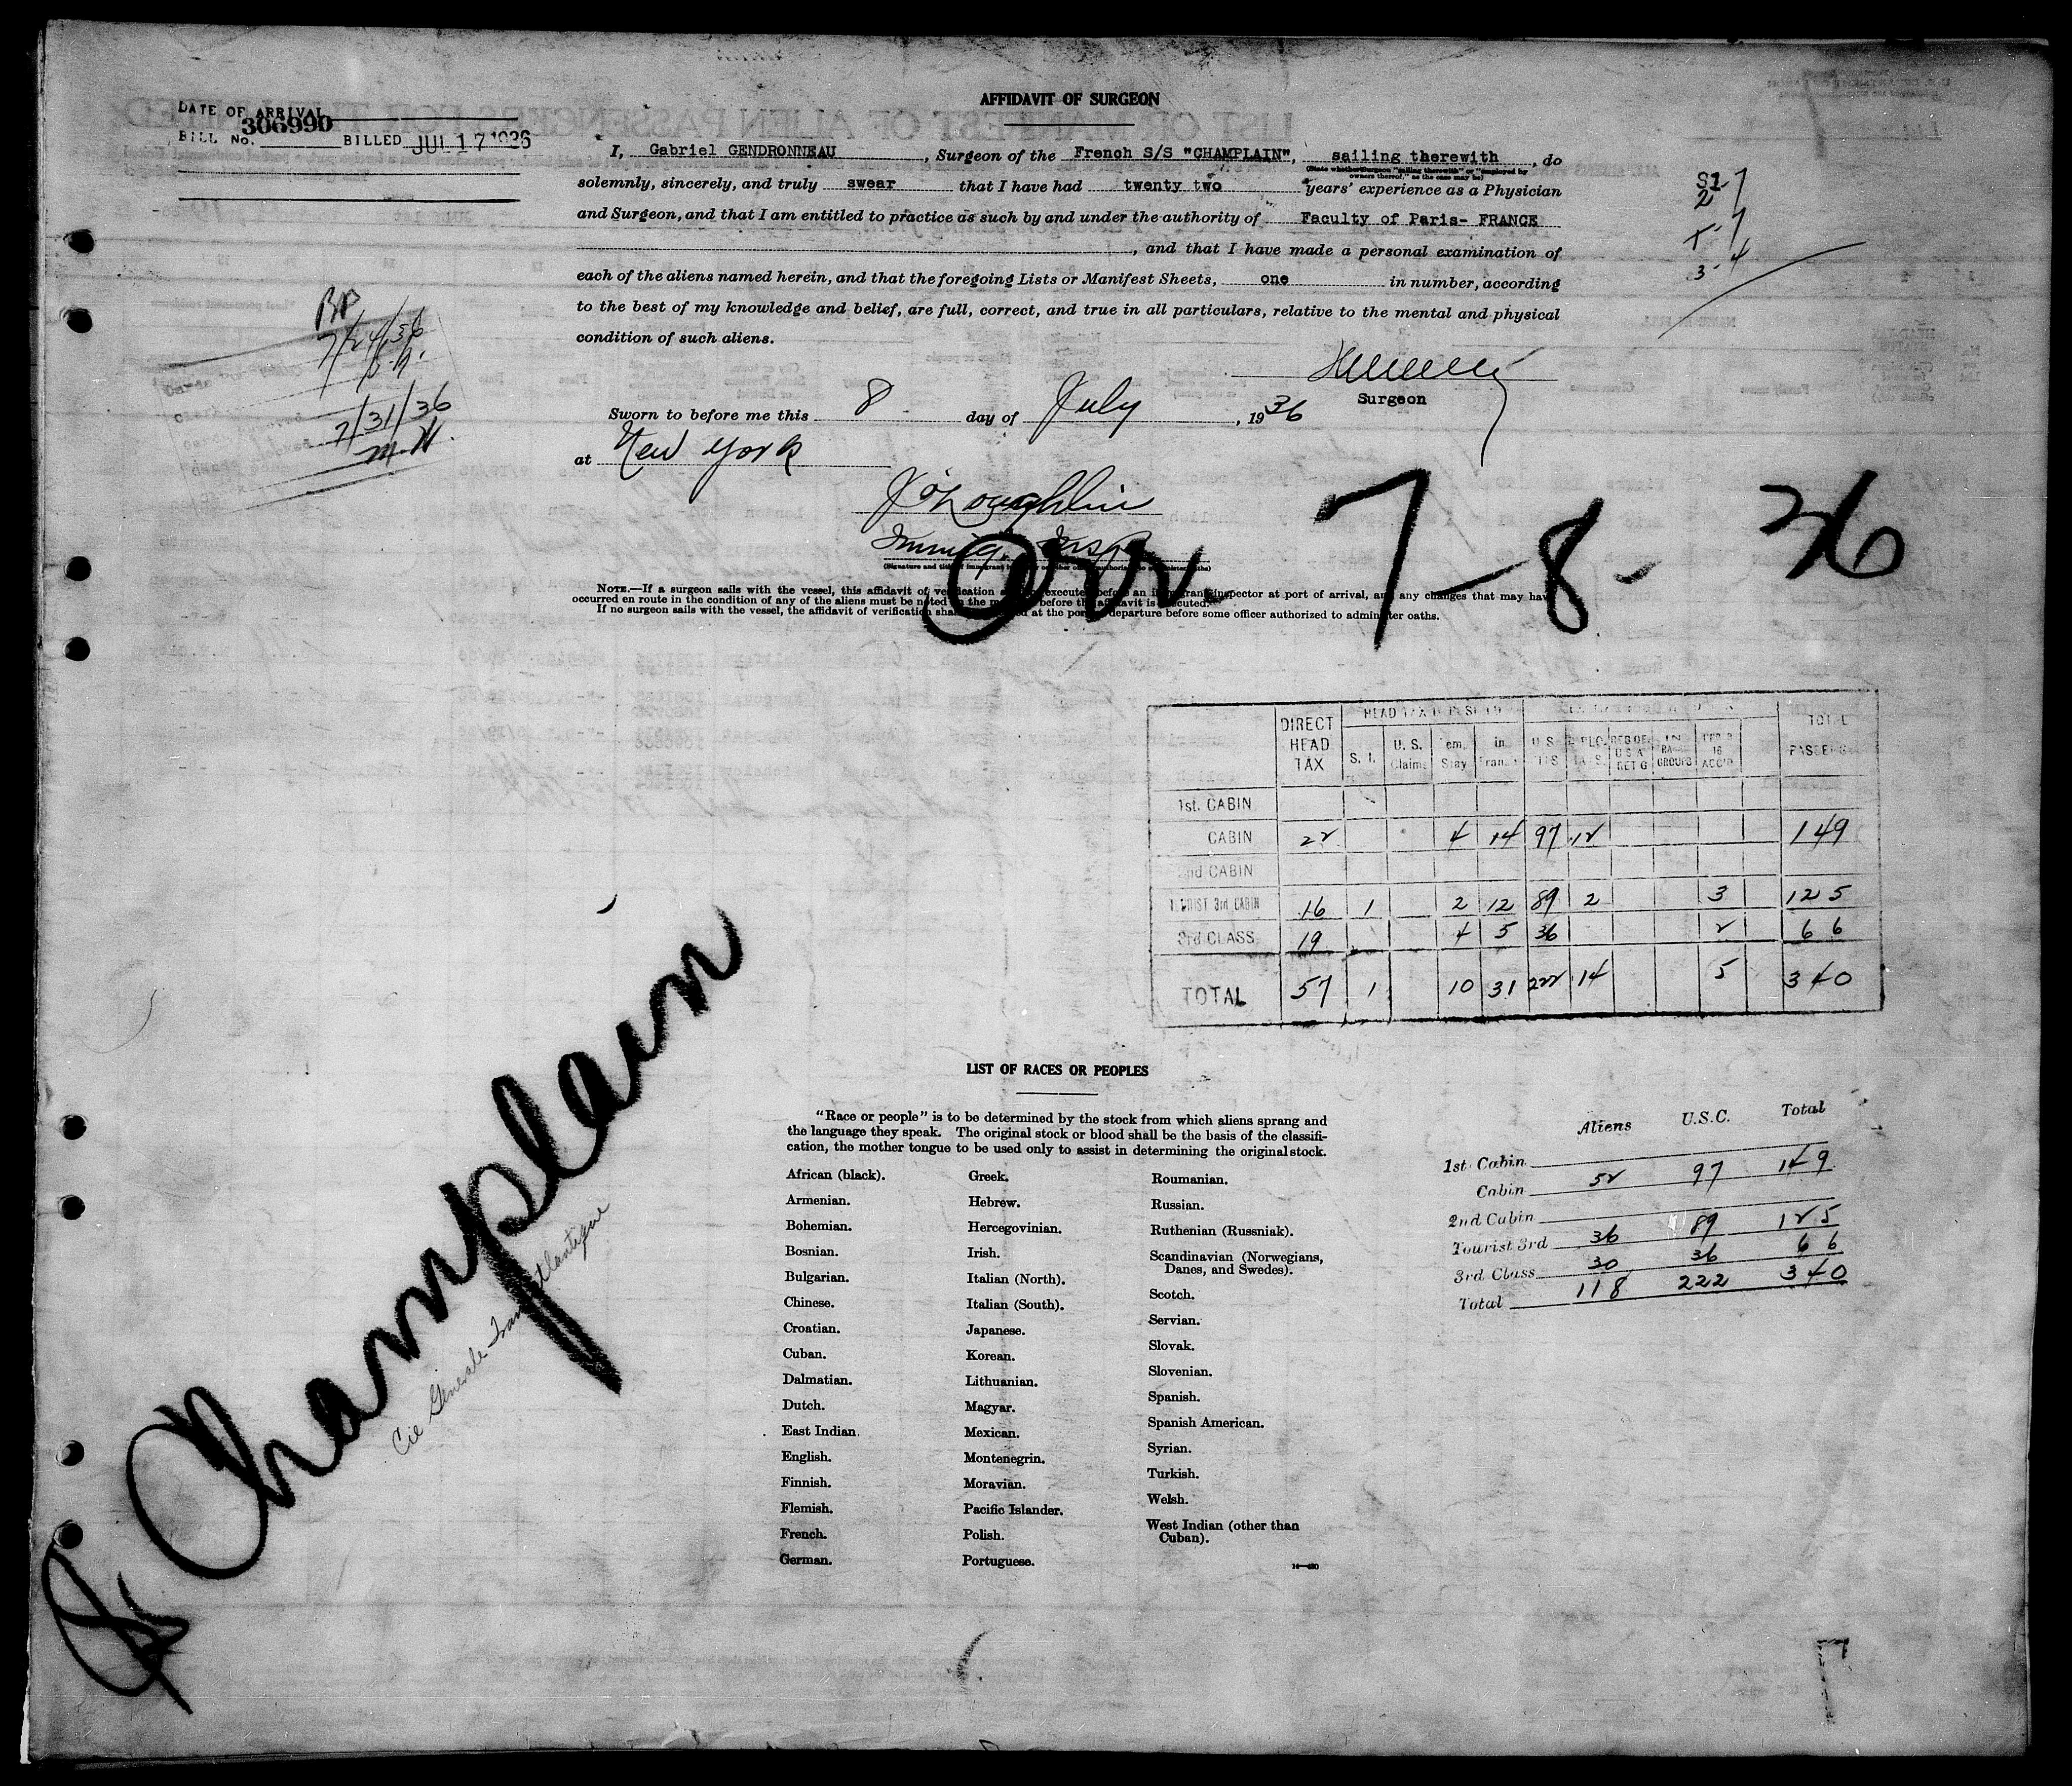 AFFIDAVIT OF SURGEON
DATE OF ARRIVAL
BILL No. 306990 BILLED JUL 17 1936
I, Gabriel GENDRONNEAU, Surgeon of the French S/S "CHAMPLAIN", sailing therewith, do
(State whether Surgeon "sailing therewith" or "employed by owners thereof," as the case may be)
solemnly, sincerely, and truly swear that I have had twenty two years' experience as a Physician
and Surgeon, and that I am entitled to practice as such by and under the authority of Faculty of Paris- FRANCE
, and that I have made a personal examination of
each of the aliens named herein, and that the foregoing Lists or Manifest Sheets, one in number, according
to the best of my knowledge and belief, are full, correct, and true in all particulars, relative to the mental and physical
condition of such aliens.
Surgeon
Sworn to before me this 8 day of July, 1936
at New York
J O'Loughlin
Immig. Insp.
BP
7/24/36
7/31/36
M.H.
Arr. 7-8-36
NOTE.—If a surgeon sails with the vessel, this affidavit of verification executed before an immigrant inspector at port of arrival, and any changes that may have
occurred en route in the condition of any of the aliens must be noted in the before the affidavit is executed.
If no surgeon sails with the vessel, the affidavit of verification shall at the port departure before some officer authorized to administer oaths.
DIRECT HEAD TAX S. I. U. S. Claims TOTAL PASSENG
1st. CABIN
CABIN 22 4 14 97 12 149
2nd CABIN
TOURIST 3rd CABIN 16 1 2 12 89 2 3 125
3rd CLASS 19 4 5 36 2 66
TOTAL 57 1 10 31 222 14 5 340
S Champlain
Cie Generale Transatlantique
LIST OF RACES OR PEOPLES
"Race or people" is to be determined by the stock from which aliens sprang and
the language they speak. The original stock or blood shall be the basis of the classifi-
cation, the mother tongue to be used only to assist in determining the original stock.
African (black).
Armenian.
Bohemian.
Bosnian.
Bulgarian.
Chinese.
Croatian.
Cuban.
Dalmatian.
Dutch.
East Indian.
English.
Finnish.
Flemish.
French.
German.
Greek.
Hebrew.
Hercegovinian.
Irish.
Italian (North).
Italian (South).
Japanese.
Korean.
Lithuanian.
Magyar.
Mexican.
Montenegrin.
Moravian.
Pacific Islander.
Polish.
Portuguese.
Roumanian.
Russian.
Ruthenian (Russniak).
Scandinavian (Norwegians,
Danes, and Swedes).
Scotch.
Servian.
Slovak.
Slovenian.
Spanish.
Spanish American.
Syrian.
Turkish.
Welsh.
West Indian (other than
Cuban).
Aliens U.S.C. Total
1st Cabin
Cabin 52 97 149
2nd Cabin
Tourist 3rd 36 89 125
3rd Class 30 36 66
Total 118 222 340